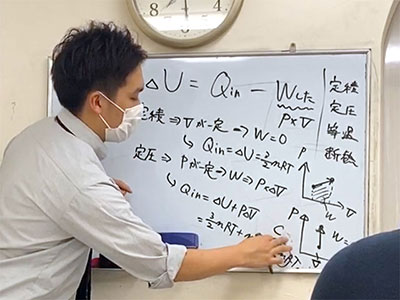 ΔU = Qin − Wした
P×V
定積 ⇒ Vが一定 → W=0
↳ Qin = ΔU = 3/2 nRT
定圧 ⇒ Pが一定 → W ⇒ P×V
↳ Qin = ΔU + PV
= 3/2 nRT + n
定積
定圧
断熱
P
V
W
P
W=